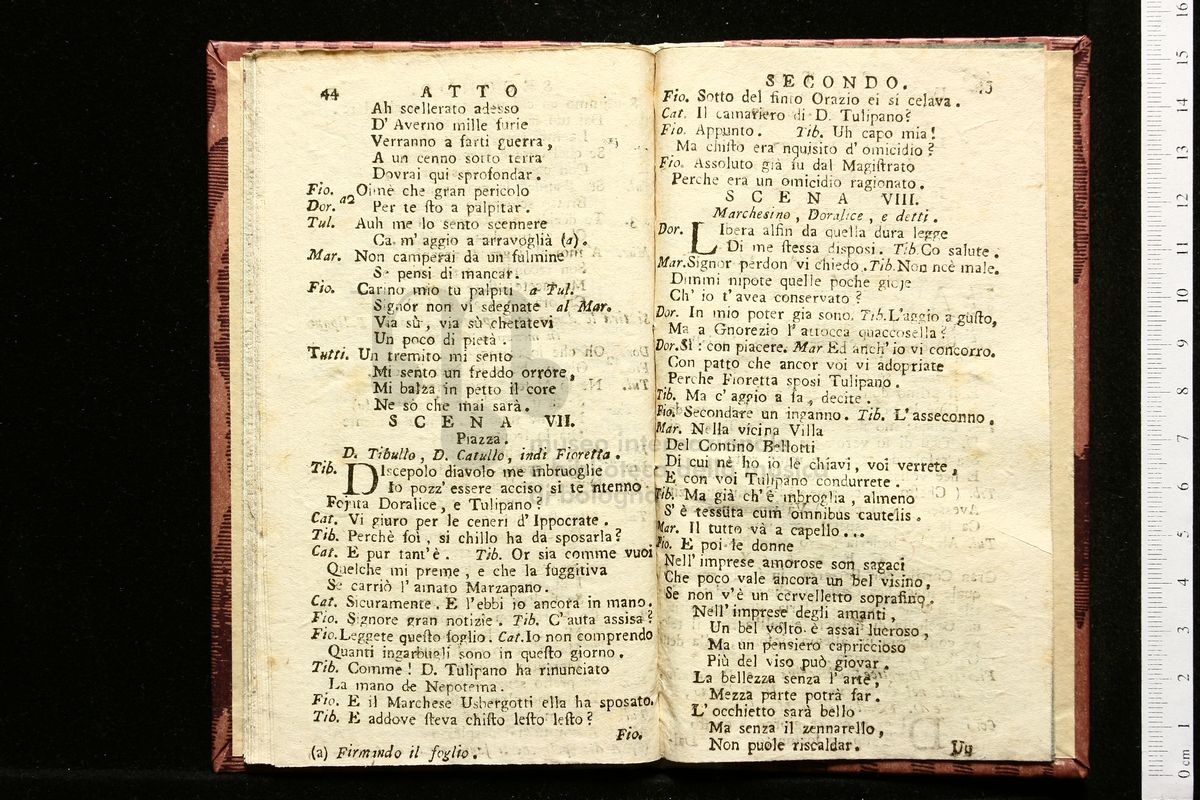 44 ATTO
Ah scellerato adesso
D' Averno mille furie
Verranno a farti guerra,
A un cenno sotto terra
Dovrai qui sprofondar.
Fio. Oimè che gran pericolo
Dor. a2 Per te sto a palpitar.
Tul. Auh me lo sento scennere
Ca m' aggio a arravoglià (a).
Mar. Non camperai da un fulmine
Se pensi di mancar.
Fio. Carino mio tu palpiti a Tul.
Signor non vi sdegnate al Mar.
Via sù, via sù chetatevi
Un poco di pietà.
Tutti. Un tremito mi sento
Mi sento un freddo orrore,
Mi balza in petto il core
Ne so che mai sarà.
SCENA VII.
Piazza.
D. Tibullo, D. Catullo, indi Fioretta.
Tib. DIscepolo diavolo me mbruoglie
Io pozz' essere acciso si te ntenno
Fojita Doralice, e Tulipano?
Cat. Vi giuro per le ceneri d' Ippocrate.
Tib. Perchè foi, si chillo ha da sposarla?
Cat. E pur tant' è. Tib. Or sia comme vuoi
Quelche mi preme, e che la fuggitiva
Se carriò l' amato Marzapano.
Cat. Sicuramente. E l'ebbi io ancora in mano.
Fio. Signore gran notizie. Tib. C' auta assisa?
Fio. Leggete questo foglio. Cat. Io non comprendo
Quanti ingarbugli sono in questo giorno.
Tib. Comme! D. Tulipano ha rinunciato
La mano de Nepotema.
Fio. E il Marchese Usbergotti ella ha sposato.
Tib. E addove steva chisto lesto lesto?
Fio.
(a) Firmando il foglio.
SECONDO. 45
Fio. Sotto del finto Orazio ei si celava.
Cat. Il camariero di D. Tulipano?
Fio. Appunto. Tib. Uh capo mia!
Ma chisto era nquisito d' omicidio?
Fio. Assoluto già fu dal Magistrato
Perche era un omicidio ragionato.
SCENA VIII.
Marchesino, Doralice, e detti.
Dor. LIbera alfin da quella dura legge
Di me stessa disposi. Tib. Co salute.
Mar. Signor perdon vi chiedo. Tib. Non ncè male.
Dimmi nipote quelle poche gioje
Ch' io t'avea conservato?
Dor. In mio poter gia sono. Tib. L'aggio a gusto,
Ma a Gnorezio l' attocca quaccosella?
Dor. Sì: con piacere. Mar Ed anch' io vi concorro.
Con patto che ancor voi vi adopriate
Perche Fioretta sposi Tulipano.
Tib. Ma c' aggio a fa, decite.
Fio. Secondare un inganno. Tib. L' asseconno.
Mar. Nella vicina Villa
Del Contino Bellotti
Di cui nè ho io le chiavi, voi verrete,
E con voi Tulipano condurrete.
Tib. Ma già ch' è mbroglia, almeno
S' è tessuta cum omnibus cautelis.
Mar. Il tutto và a capello...
Fio. E poi le donne
Nell' imprese amorose son sagaci
Che poco vale ancora un bel visino,
Se non v'è un cervelletto soprafino.
Nell' imprese degli amanti,
Un bel volto è assai lucroso,
Ma un pensiero capriccioso
Più del viso può giovar.
La bellezza senza l' arte,
Mezza parte potrà far.
L' occhietto sarà bello
Ma senza il zennarello,
Non puole riscaldar.